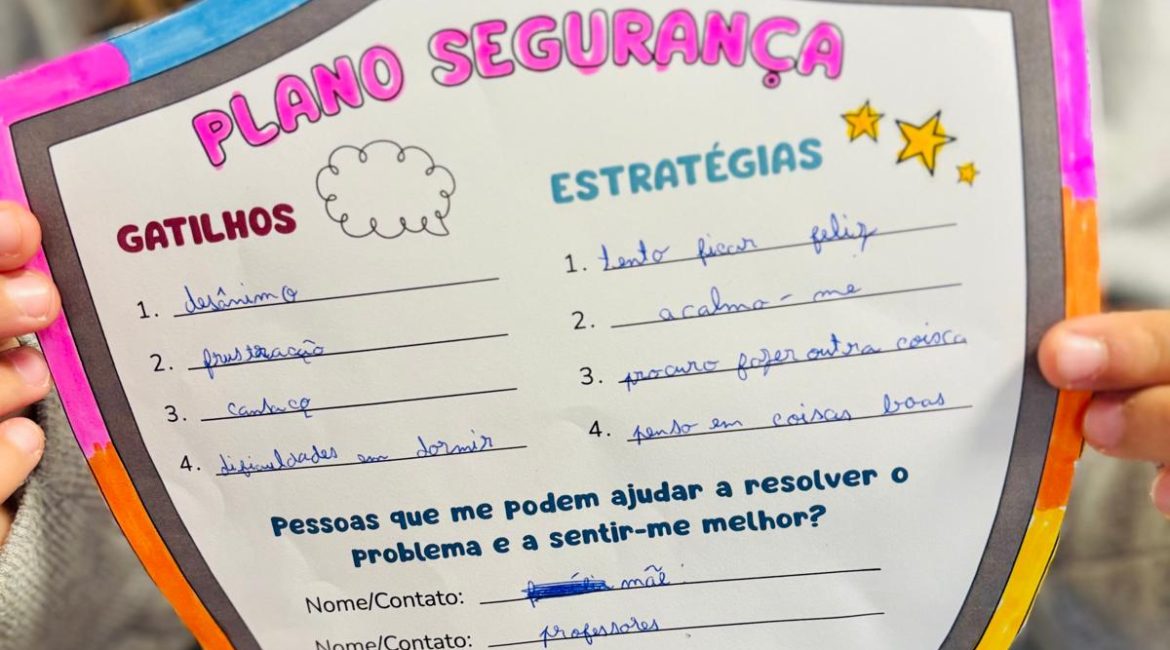 PLANO SEGURANÇA
GATILHOS
1. desânimo
2. frustração
3. cansaço
4. dificuldades em dormir
ESTRATÉGIAS
1. tento ficar feliz
2. acalmo-me
3. procuro fazer outra coisa
4. penso em coisas boas
Pessoas que me podem ajudar a resolver o
problema e a sentir-me melhor?
Nome/Contato: mãe
Nome/Contato: professores